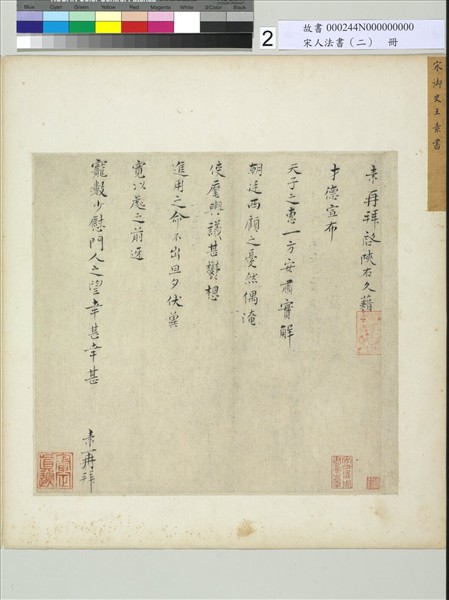 Blue Cyan Green Yellow Red Magenta White 3/Color Black
2
故書 000244N000000000
宋人法書（二） 冊
宋御史王素書
素再拜啟陝右久藉
才德宣布
天子之惠一方安肅實解
朝廷西顧之憂然偶淹
使麾輿議甚鬱想
進用之命不出旦夕伏冀
寬以處之前迓
寵數少慰門人之望幸甚幸甚
素再拜